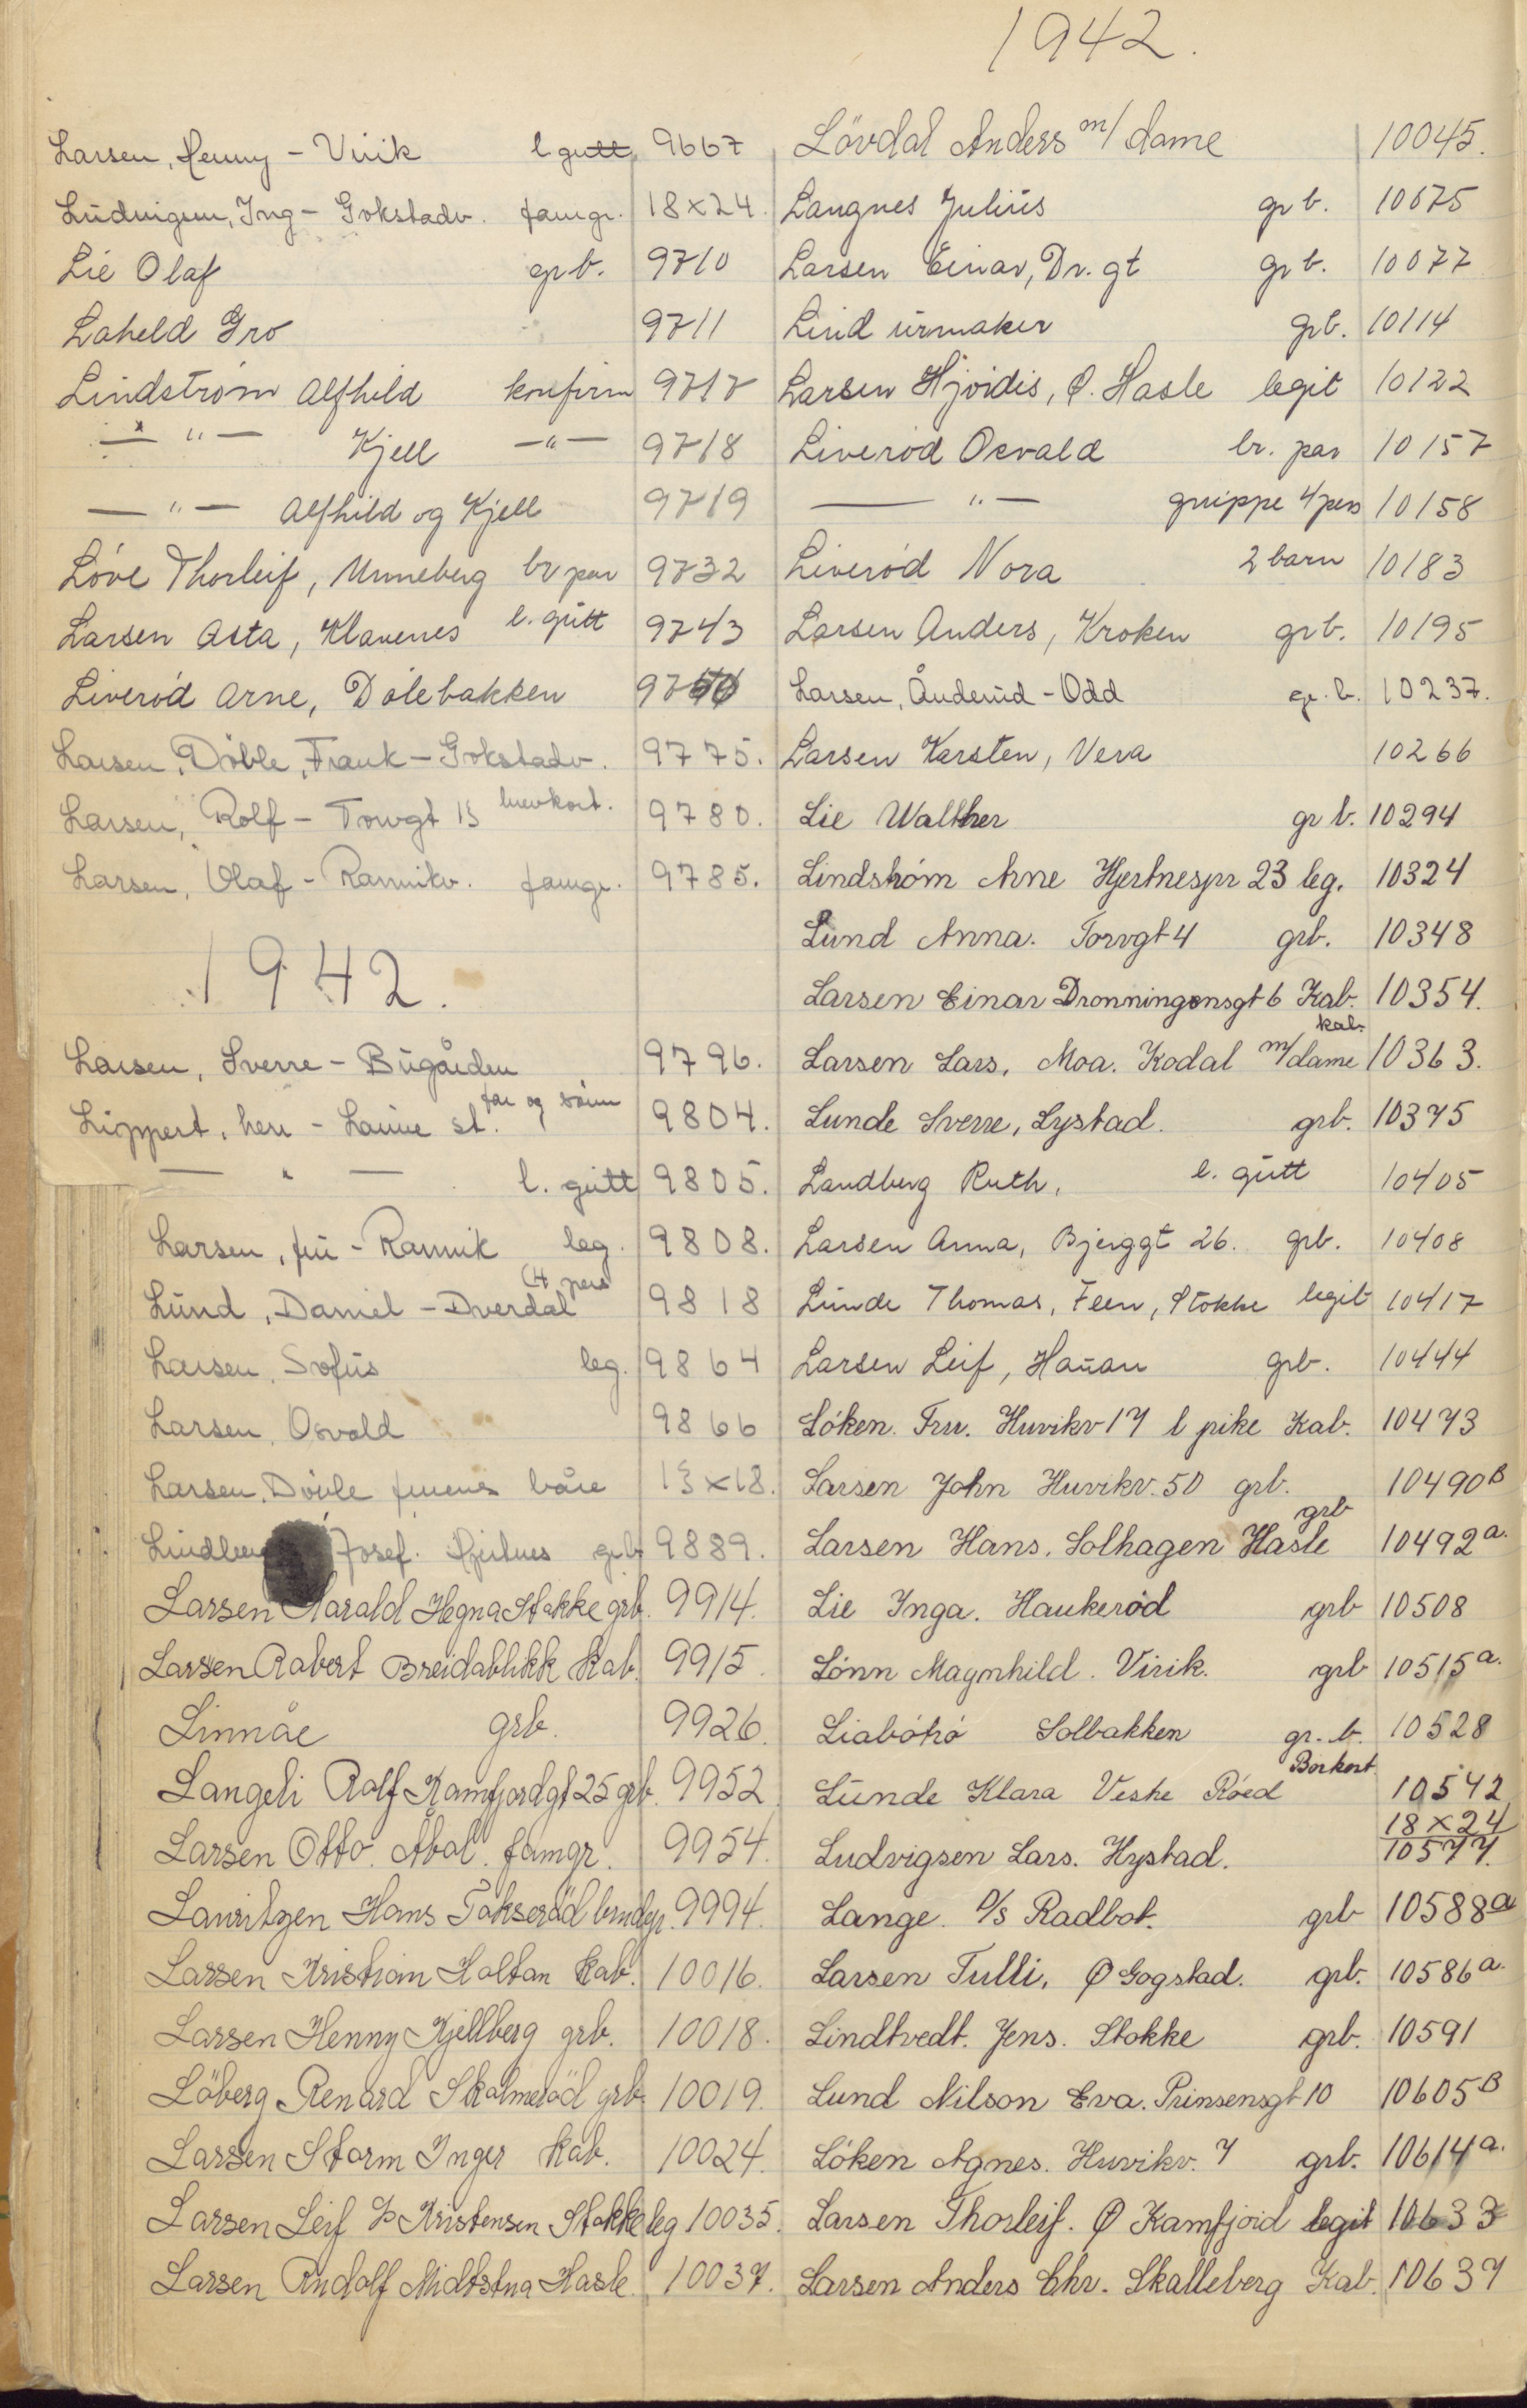 1942.
Larsen, Henny - Virik l gutt 9667
Ludvigsen, Ing - Gokstadv. famgr. 18x24.
Lie Olaf gr b. 9710
Laheld Gro 9711
Lindström Alfhild konfirm 9717
— " — Kjell — " — 9718
— " — Alfhild og Kjell 9719
Löve Thorleif, Unneberg br par 9732
Larsen Asta, Klavenes l. gutt 9743
Liveröd Arne, Dölebakken
Larsen, Döble, Frank - Gokstadv. 9775.
Larsen, Rolf - Torvgt 15 brevkort. 9780.
Larsen, Olaf - Ranvikv. famgr. 9785.
1942.
Larsen, Sverre - Bugården 9796.
Lippert, herr - st. far og sönn 9804.
— " — l. gutt 9805.
Larsen, fru - Ranvik leg. 9808.
Lund, Daniel - Dverdal (4 pers 9818
Larsen, Sofus leg. 9864
Larsen, Osvald 9866
Larsen, Döble båre 13x18.
Josef. grb 9889.
Larsen Harald Hegna Stokke grb. 9914.
Larsen Robert Breidablikk Kab. 9915.
Linnåe grb. 9926.
Langeli Rolf Kamfjordgt 25 grb. 9952
Larsen Otto. Åbol. famgr. 9954.
Lauritzen Hans Tokseröd brudgr. 9994.
Larsen Kristian Holtan Kab. 10016.
Larsen Henny Kjellberg grb. 10018.
Löberg Renard Skolmeröd grb 10019.
Larsen Storm Inger Kab. 10024.
Larsen Leif Kristensen Stokke leg 10035.
Larsen Rudolf Midtstua Hasle. 10037.
Lövdal Anders m/ dame 10045.
Langnes Julius gr b. 10675
Larsen Einar, Dr. gt gr b. 10077
Lind urmaker grb. 10114
Larsen Hjördis, Ø. Hasle legit 10122
Liveröd Osvald br. par 10157
— " — gruppe 4 pers 10158
Liveröd Nora 2 barn 10183
Larsen Anders, Kroken gr b. 10195
Larsen, Ånderud - Odd gr. b. 10237.
Larsen Karsten, Vera 10266
Lie Walther gr b. 10294
Lindström Arne Hjertnespr 23 leg. 10324
Lund Anna. Torvgt 4 grb. 10348
Larsen Einar Dronningensgt 6 Kab. 10354.
Larsen Lars, Moa. Kodal m/dame kab. 10363.
Lunde Sverre, Lystad. grb. 10375
Landberg Ruth, l. gutt 10405
Larsen Anna, Bjerggt 26. grb. 10408
Lunde Thomas, Feen, Stokke legit 10417
Larsen Leif, Hauan grb. 10444
Löken. Fru. Huvikv 17 l pike Kab. 10473
Larsen John Huvikv. 50 grb. 10490 B
Larsen Hans. Solhagen Hasle grb 10492 a.
Lie Inga. Haukeröd grb 10508
Lönn Magnhild. Virik. grb 10515 a.
Liabötrö Solbakken gr. b. 10528
Lunde Klara Veske Röed 10542
Ludvigsen Lars. Hystad. 18x24 10577.
Lange. D/s Radbot. grb 10588 a
Larsen Tulli, Ø Gogstad. grb. 10586 a.
Lindtvedt. Jens. Stokke grb. 10591
Lund Nilson Eva. Prinsensgt 10 10605 B
Löken Agnes. Huvikv. 7 grb. 10614 a.
Larsen Thorleif. Ø Kamfjord legit 10633
Larsen Anders Chr. Skalleberg Kab. 10637